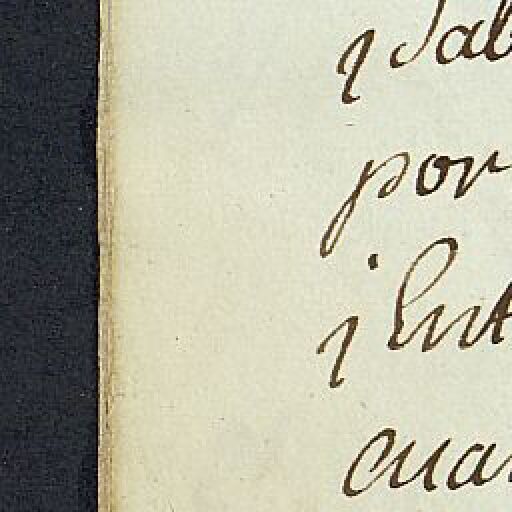 j Sab
por
j Ent
cuan